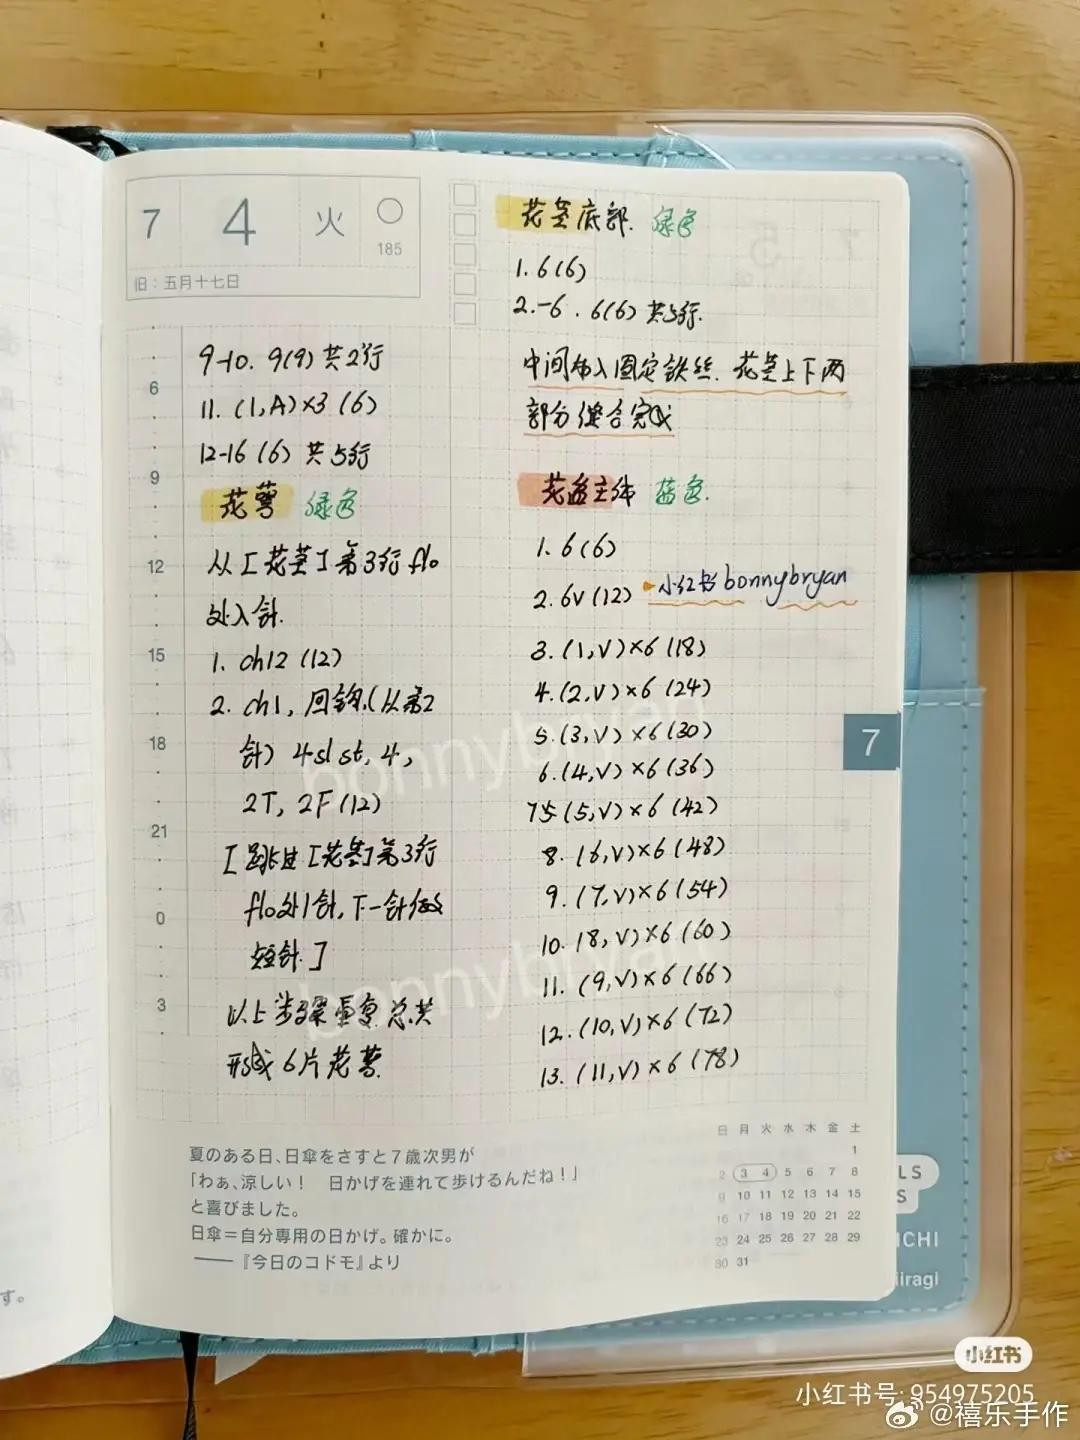 7 4 火
185
旧：五月十七日
9-10. 9(9) 共2行
11. (1,A)×3 (6)
12-16 (6) 共5行
花萼 绿色
从[花茎]第3行flo
处入针.
1. ch12 (12)
2. ch1, 回钩,(从第2
针) 4slst, 4,
2T, 2F(12)
[跳过[花茎]第3行
flo处1针,下一针做
短针.]
以上步骤重复总共
形成6片花萼.
6
9
12
15
18
21
0
3
花茎底部. 绿色
1. 6(6)
2.-6. 6(6) 共5行.
中间加入固定铁丝. 花茎上下两
部分缝合完成
花盆主体 蓝色.
1. 6(6)
2. 6V(12) 小红书bonnybryan
3. (1,V)×6(18)
4. (2,V)×6(24)
5. (3,V)×6(30)
6. (4,V)×6(36)
7. (5,V)×6(42)
8. (6,V)×6(48)
9. (7,V)×6(54)
10. (8,V)×6(60)
11. (9,V)×6(66)
12. (10,V)×6(72)
13. (11,V)×6(78)
7
bonnybryan
bonnybryan
夏のある日、日傘をさすと7歳次男が
「わぁ、涼しい！ 日かげを連れて歩けるんだね！」
と喜びました。
日傘＝自分専用の日かげ。確かに。
——『今日のコドモ』より
日 月 火 水 木 金 土
1
2 3 4 5 6 7 8
9 10 11 12 13 14 15
16 17 18 19 20 21 22
23 24 25 26 27 28 29
30 31
す。
LS
S
ICHI
iiragi
小红书
小红书号: 954975205
@禧乐手作